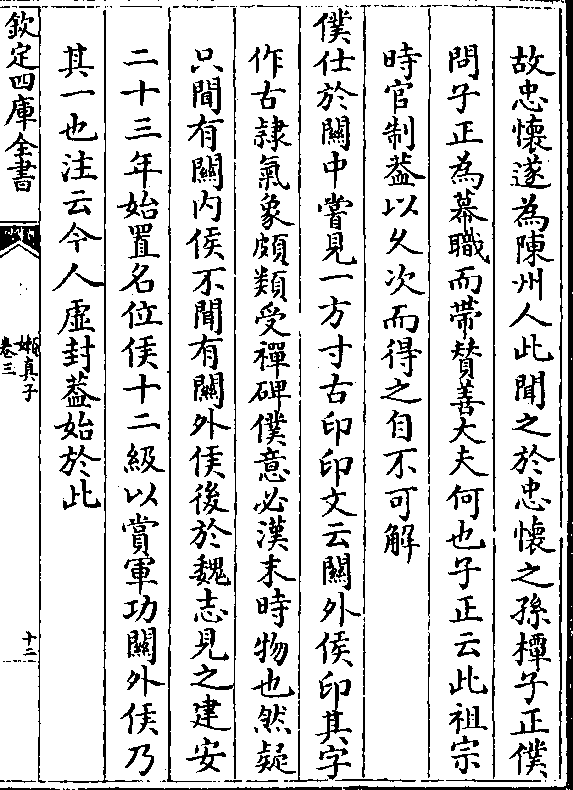 故忠懷遂為陳州人此聞之於忠懷之孫樿子正僕
問子正為幕職而帶賛善大夫何也子正云此祖宗
時官制葢以久次而得之自不可解
僕仕於關中嘗見一方寸古印印文云關外侯印其字
作古隷氣象頗類受禪碑僕意必漢末時物也然疑
只間有關内侯不聞有關外侯後於魏志見之建安
二十三年始置名位侯十二級以賞軍功關外侯乃
其一也注云今人虛封葢始於此
欽定四庫全書
嬾真子
卷三
十二